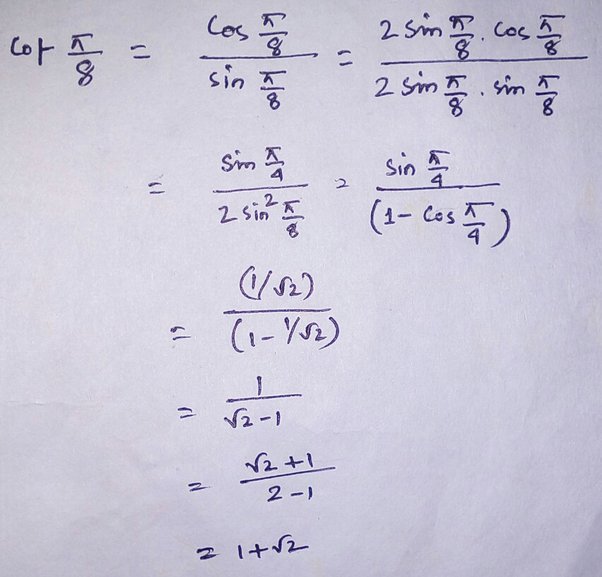 cot π/8 = cos π/8 / sin π/8 = 2 sin π/8 . cos π/8 / 2 sin π/8 . sin π/8
= sin π/4 / 2 sin² π/8 = sin π/4 / (1 - cos π/4)
= (1/√2) / (1 - 1/√2)
= 1 / √2 - 1
= √2 + 1 / 2 - 1
= 1 + √2